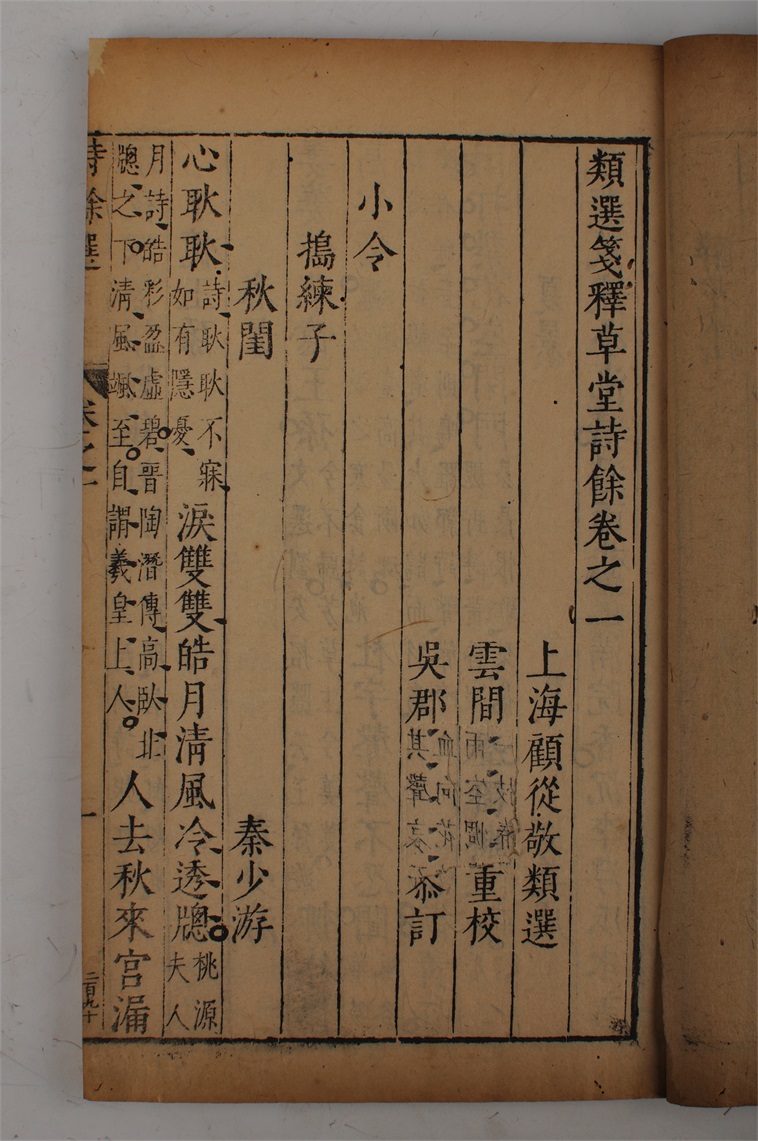 類選箋釋草堂詩餘卷之一
上海顧從敬類選
雲間重校
吳郡叅訂
小令
搗練子
秋閨 秦少游
心耿耿詩耿耿不寐如有隱憂淚雙雙皓月清風冷透牕桃源夫人
月詩皓彩盈虛碧晉陶潛傳高臥北牕之下清風颯至自謂羲皇上人人去秋來宮漏
詩餘選 卷之一 一 二百九十